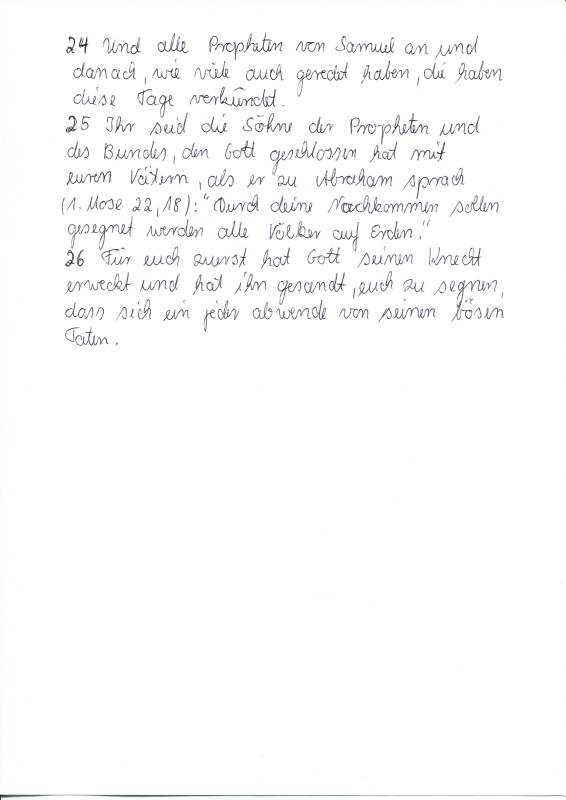 24 Und alle Propheten von Samuel an und
danach, wie viele auch geredet haben, die haben
diese Tage verkündet.
25 Ihr seid die Söhne der Propheten und
des Bundes, den Gott geschlossen hat mit
euren Vätern, als er zu Abraham sprach
(1. Mose 22,18): "Durch deine Nachkommen sollen
gesegnet werden alle Völker auf Erden."
26 Für euch zuerst hat Gott seinen Knecht
erweckt und hat ihn gesandt, euch zu segnen,
dass sich ein jeder abwende von seinen bösen
Taten.